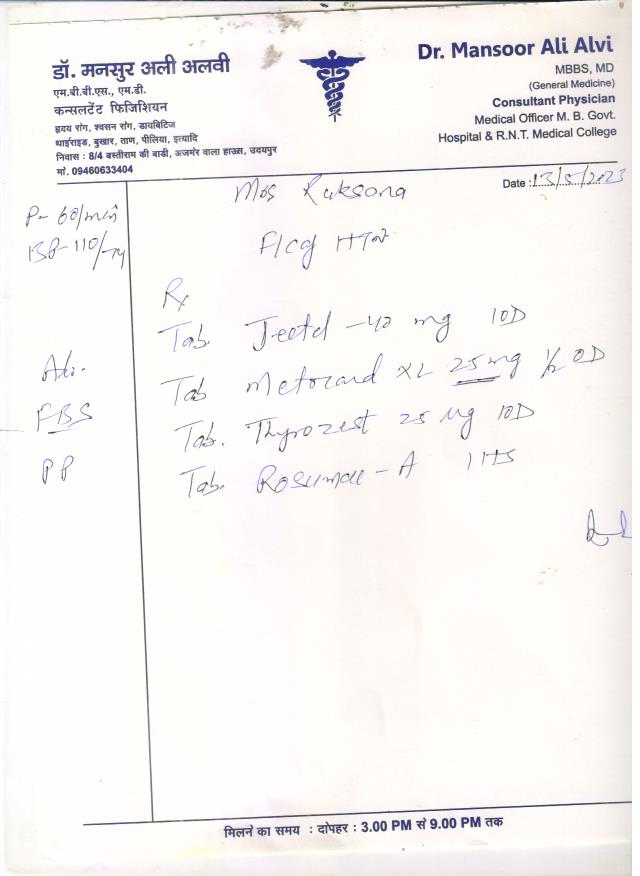 डॉ. मनसुर अली अलवी
एम.बी.बी.एस., एम.डी.
कन्सलटेंट फिजिशियन
हृदय रांग, श्वसन रांग, डायबिटिज
थाईराइड, बुखार, ताण, पीलिया, इत्यादि
निवास : 8/4 बस्तीराम की बाडी, अजमेर वाला हाउस, उदयपुर
मो. 09460633404
Dr. Mansoor Ali Alvi
MBBS, MD
(General Medicine)
Consultant Physician
Medical Officer M. B. Govt.
Hospital & R.N.T. Medical College
Date : 13/5/2023
Mrs Ruksana
P- 60/min
BP-110/74
HTN
Rx
Tab. -40 mg 1OD
Tab Metocard XL 25 mg 1/2 OD
Tab. Thyrozest 25 ug 1OD
Tab. - A 1HS
Adv.
FBS
PP
मिलने का समय : दोपहर : 3.00 PM से 9.00 PM तक